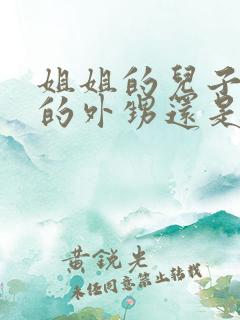 姐姐的兒子
的外甥還是
黃銳光
未经同意禁止转载